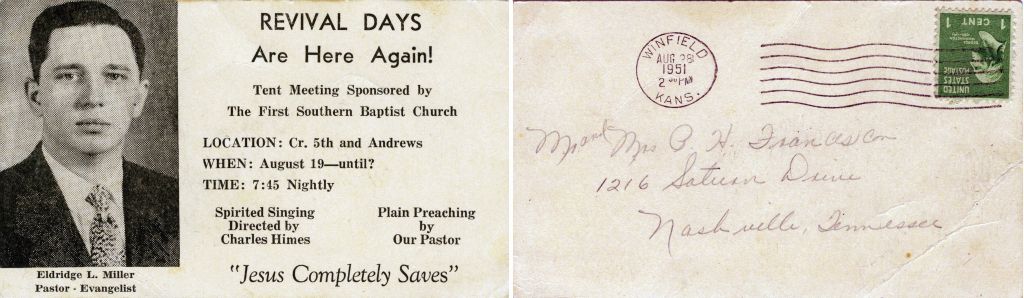 REVIVAL DAYS
Are Here Again!
Tent Meeting Sponsored by
The First Southern Baptist Church
LOCATION: Cr. 5th and Andrews
WHEN: August 19—until?
TIME: 7:45 Nightly
Spirited Singing
Directed by
Charles Himes
Plain Preaching
by
Our Pastor
"Jesus Completely Saves"
Eldridge L. Miller
Pastor - Evangelist
WINFIELD
AUG 28
1951
2 PM
KANS.
UNITED
STATES
POSTAGE
1 CENT 1
Mr and Mrs H.
1216 Saturn Drive
Nashville, Tennessee